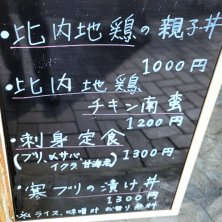 ・比内地鶏の親子丼
1000円
・比内地鶏
チキン南蛮
1200円
・刺身定食
(ブリ、〆サバ、イクラ、甘海老) 1300円
・寒ブリの漬け丼
1300円
※ライス、味噌汁お替り無料